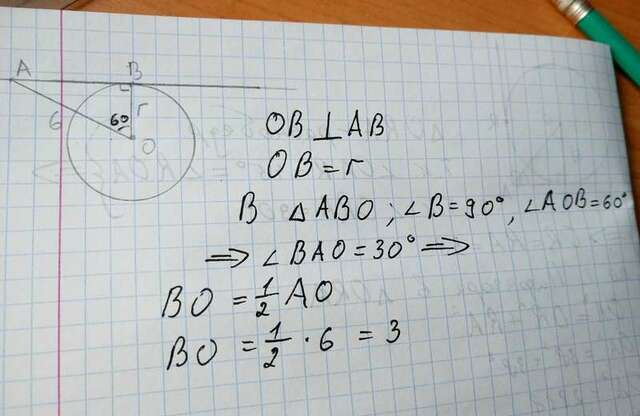 A B
r
6 60°
O
OB ⊥ AB
OB = r
В △ABO ; ∠B = 90°, ∠AOB = 60°
⇒ ∠BAO = 30° ⇒
BO = 1/2 AO
BO = 1/2 · 6 = 3